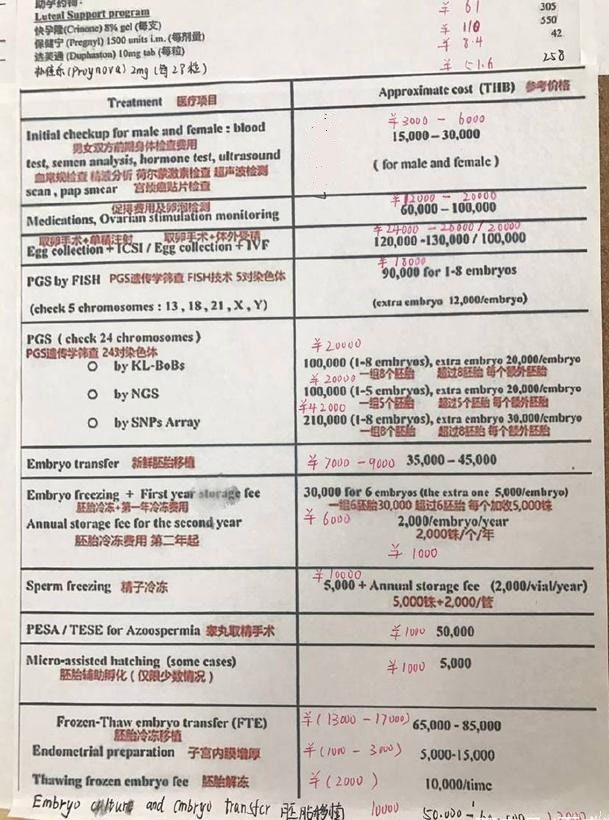 助孕药物:
Luteal Support program
快孕隆(Crinone) 8% gel (每支) ¥ 61 305
保健宁 (Pregnyl) 1500 units i.m. (每剂量) ¥ 110 550
达芙通 (Duphaston) 10mg tab (每粒) ¥ 8.4 42
补佳乐 (Proynova) 2mg (每28粒) ¥ 51.6 258
Treatment 医疗项目
Approximate cost (THB) 参考价格
Initial checkup for male and female : blood
男女双方前期身体检查费用
test, semen analysis, hormone test, ultrasound
血常规检查 精液分析 荷尔蒙激素检查 超声波检测
scan , pap smear 宫颈癌贴片检查
¥3000 - 6000
15,000 – 30,000
( for male and female )
促排费用及卵泡检测
Medications, Ovarian stimulation monitoring
¥12000 - 20000
60,000 – 100,000
取卵手术+单精注射 取卵手术+体外受精
Egg collection + ICSI / Egg collection + IVF
¥24000 - 26000 / 20000
120,000 -130,000 / 100,000
PGS by FISH PGS遗传学筛查 FISH技术 5对染色体
(check 5 chromosomes : 13 , 18 , 21 , X , Y)
¥ 18000
90,000 for 1-8 embryos
(extra embryo 12,000/embryo)
PGS ( check 24 chromosomes )
PGS遗传学筛查 24对染色体
by KL-BoBs
by NGS
by SNPs Array
¥ 20000
100,000 (1-8 embryos), extra embryo 20,000/embryo
一组8个胚胎 超过8胚胎 每个额外胚胎
¥ 20000
100,000 (1-5 embryos), extra embryo 20,000/embryo
一组5个胚胎 超过5个胚胎 每个额外胚胎
¥42000
210,000 (1-8 embryos), extra embryo 30,000/embryo
一组8个胚胎 超过8胚胎 每个额外胚胎
Embryo transfer 新鲜胚胎移植
¥ 7000 -9000 35,000 – 45,000
Embryo freezing + First year storage fee
胚胎冷冻+第一年冷冻费用
Annual storage fee for the second year
胚胎冷冻费用 第二年起
30,000 for 6 embryos (the extra one 5,000/embryo)
一组6胚胎30,000 超过6胚胎 每个加收5,000铢
¥ 6000
2,000/embryo/year
2,000铢/个/年
¥ 1000
Sperm freezing 精子冷冻
¥ 10000
5,000 + Annual storage fee (2,000/vial/year)
5,000铢+2,000/管
PESA / TESE for Azoospermia 睾丸取精手术
¥ 1000 50,000
Micro-assisted hatching (some cases)
胚胎辅助孵化（仅限少数情况）
¥ 1000 5,000
Frozen-Thaw embryo transfer (FTE)
胚胎冷冻移植
¥ ( 13000 - 17000) 65,000 - 85,000
Endometrial preparation 子宫内膜增厚
¥ (1000 - 3000) 5,000-15,000
Thawing frozen embryo fee 胚胎解冻
¥ (2000) 10,000/time
Embryo culture and embryo transfer 胚胎移植 10000